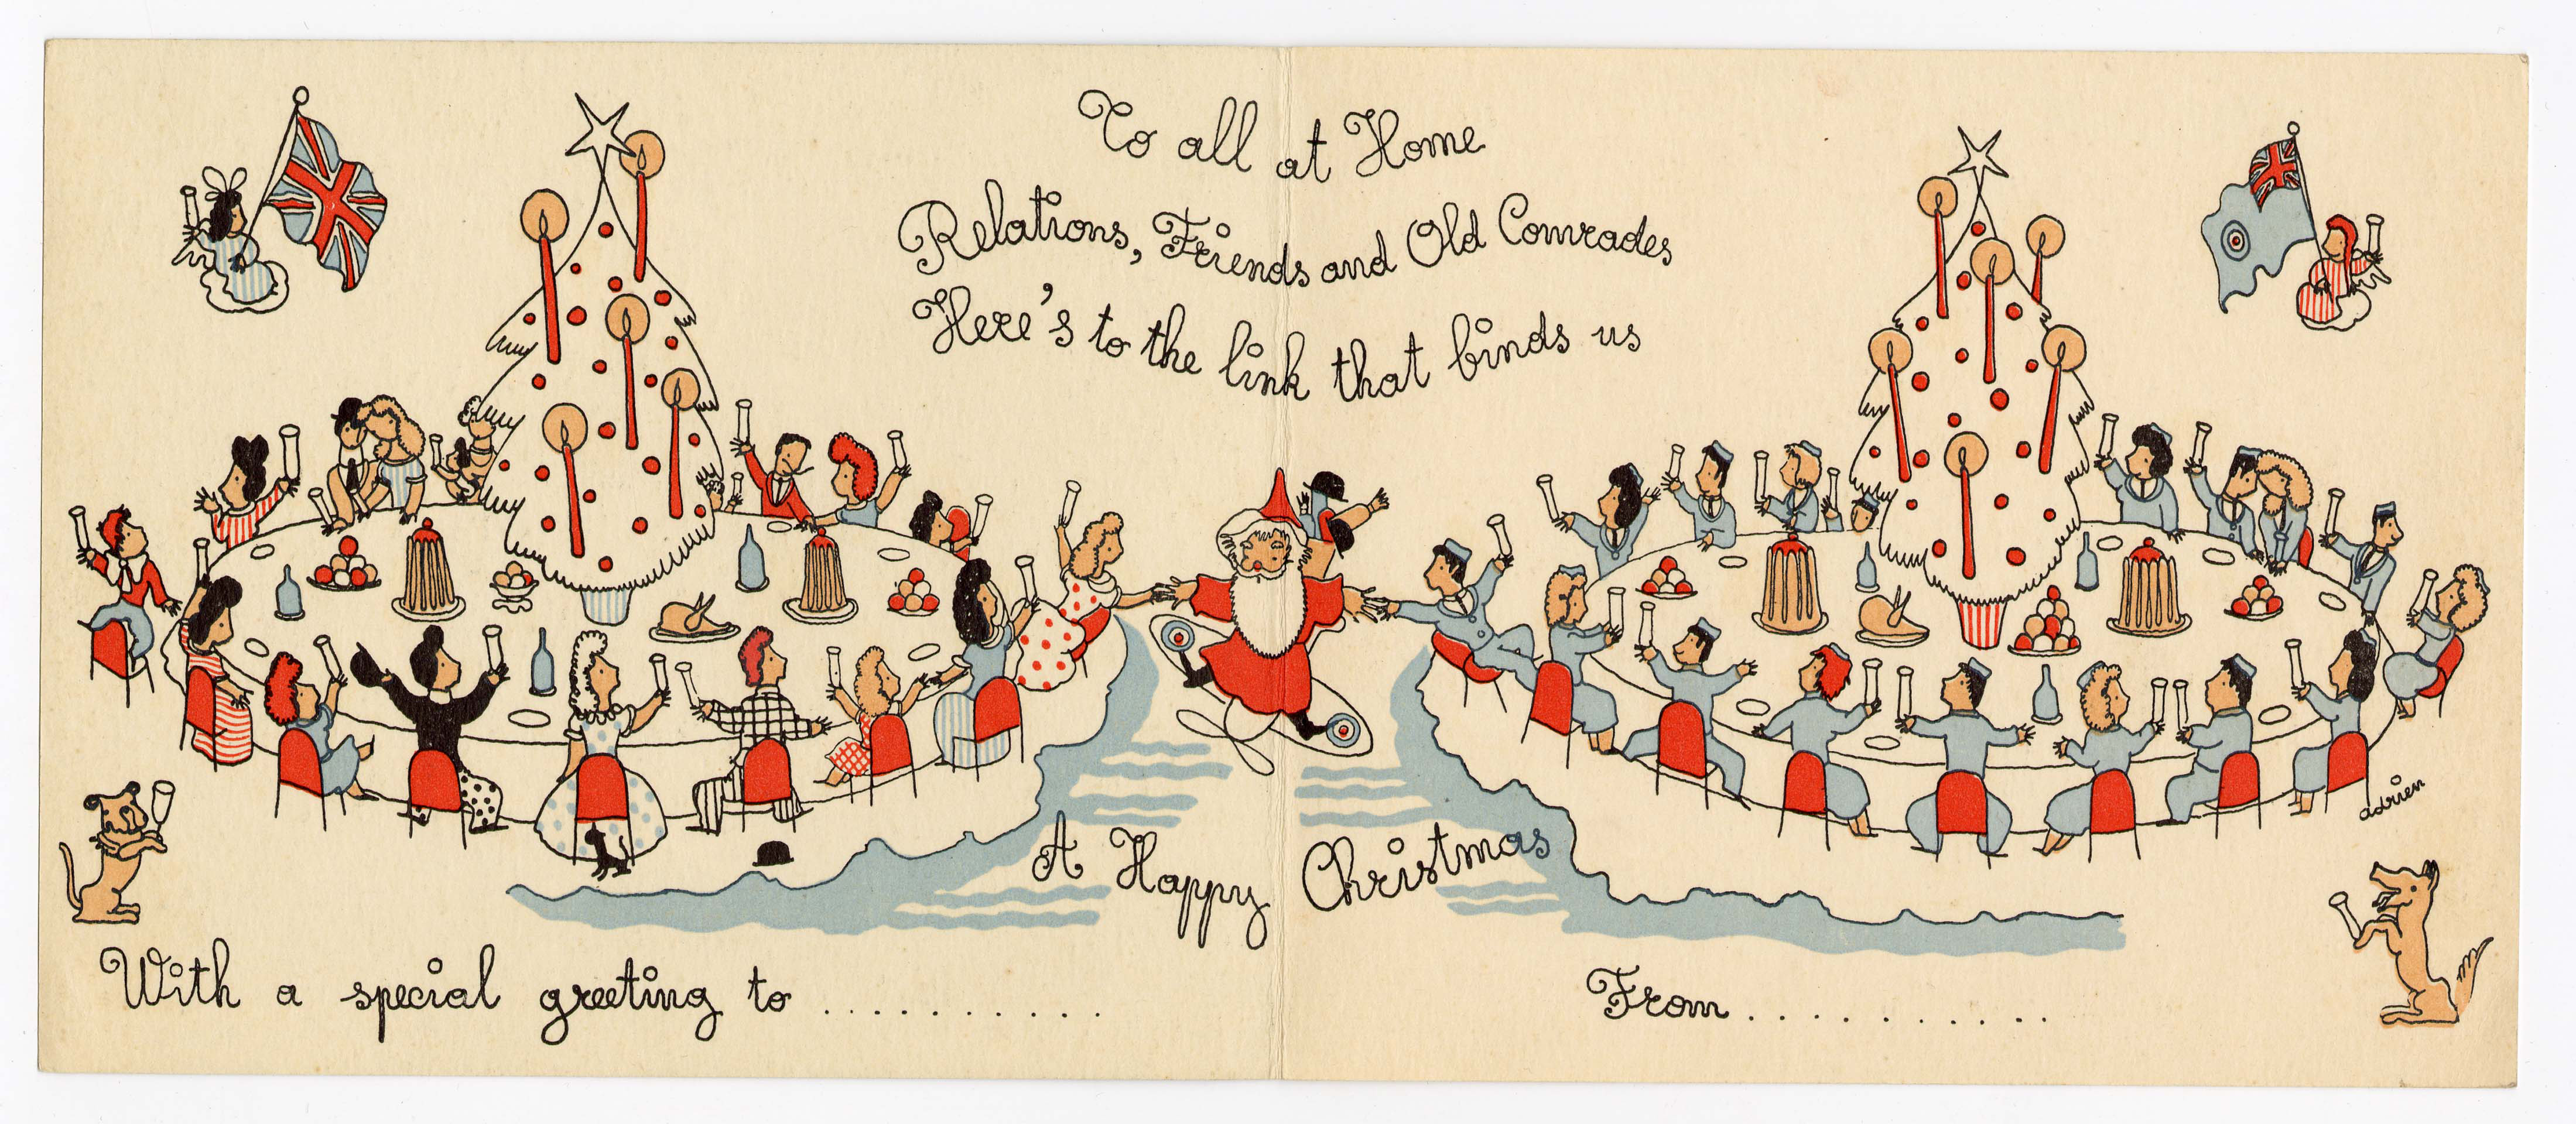 To all at Home
Relations, Friends and Old Comrades
Here's to the link that binds us
A Happy Christmas
adrien
With a special greeting to ...........
From ...........